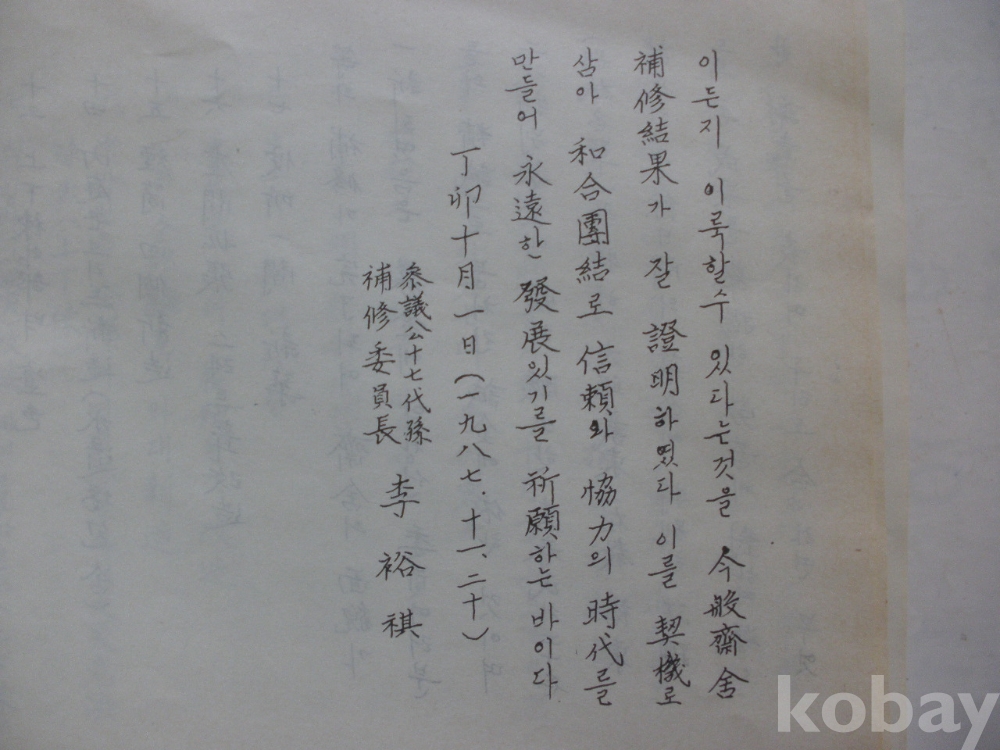 이든지 이룩할수 있다는것을 今般齋舍
補修結果가 잘 證明하였다 이를 契機로
삼아 和合團結로 信賴와 協力의 時代를
만들어 永遠한 發展있기를 祈願하는 바이다
丁卯十月一日(一九八七.十一.二十)
參議公十七代孫
補修委員長 李裕祺
kobay